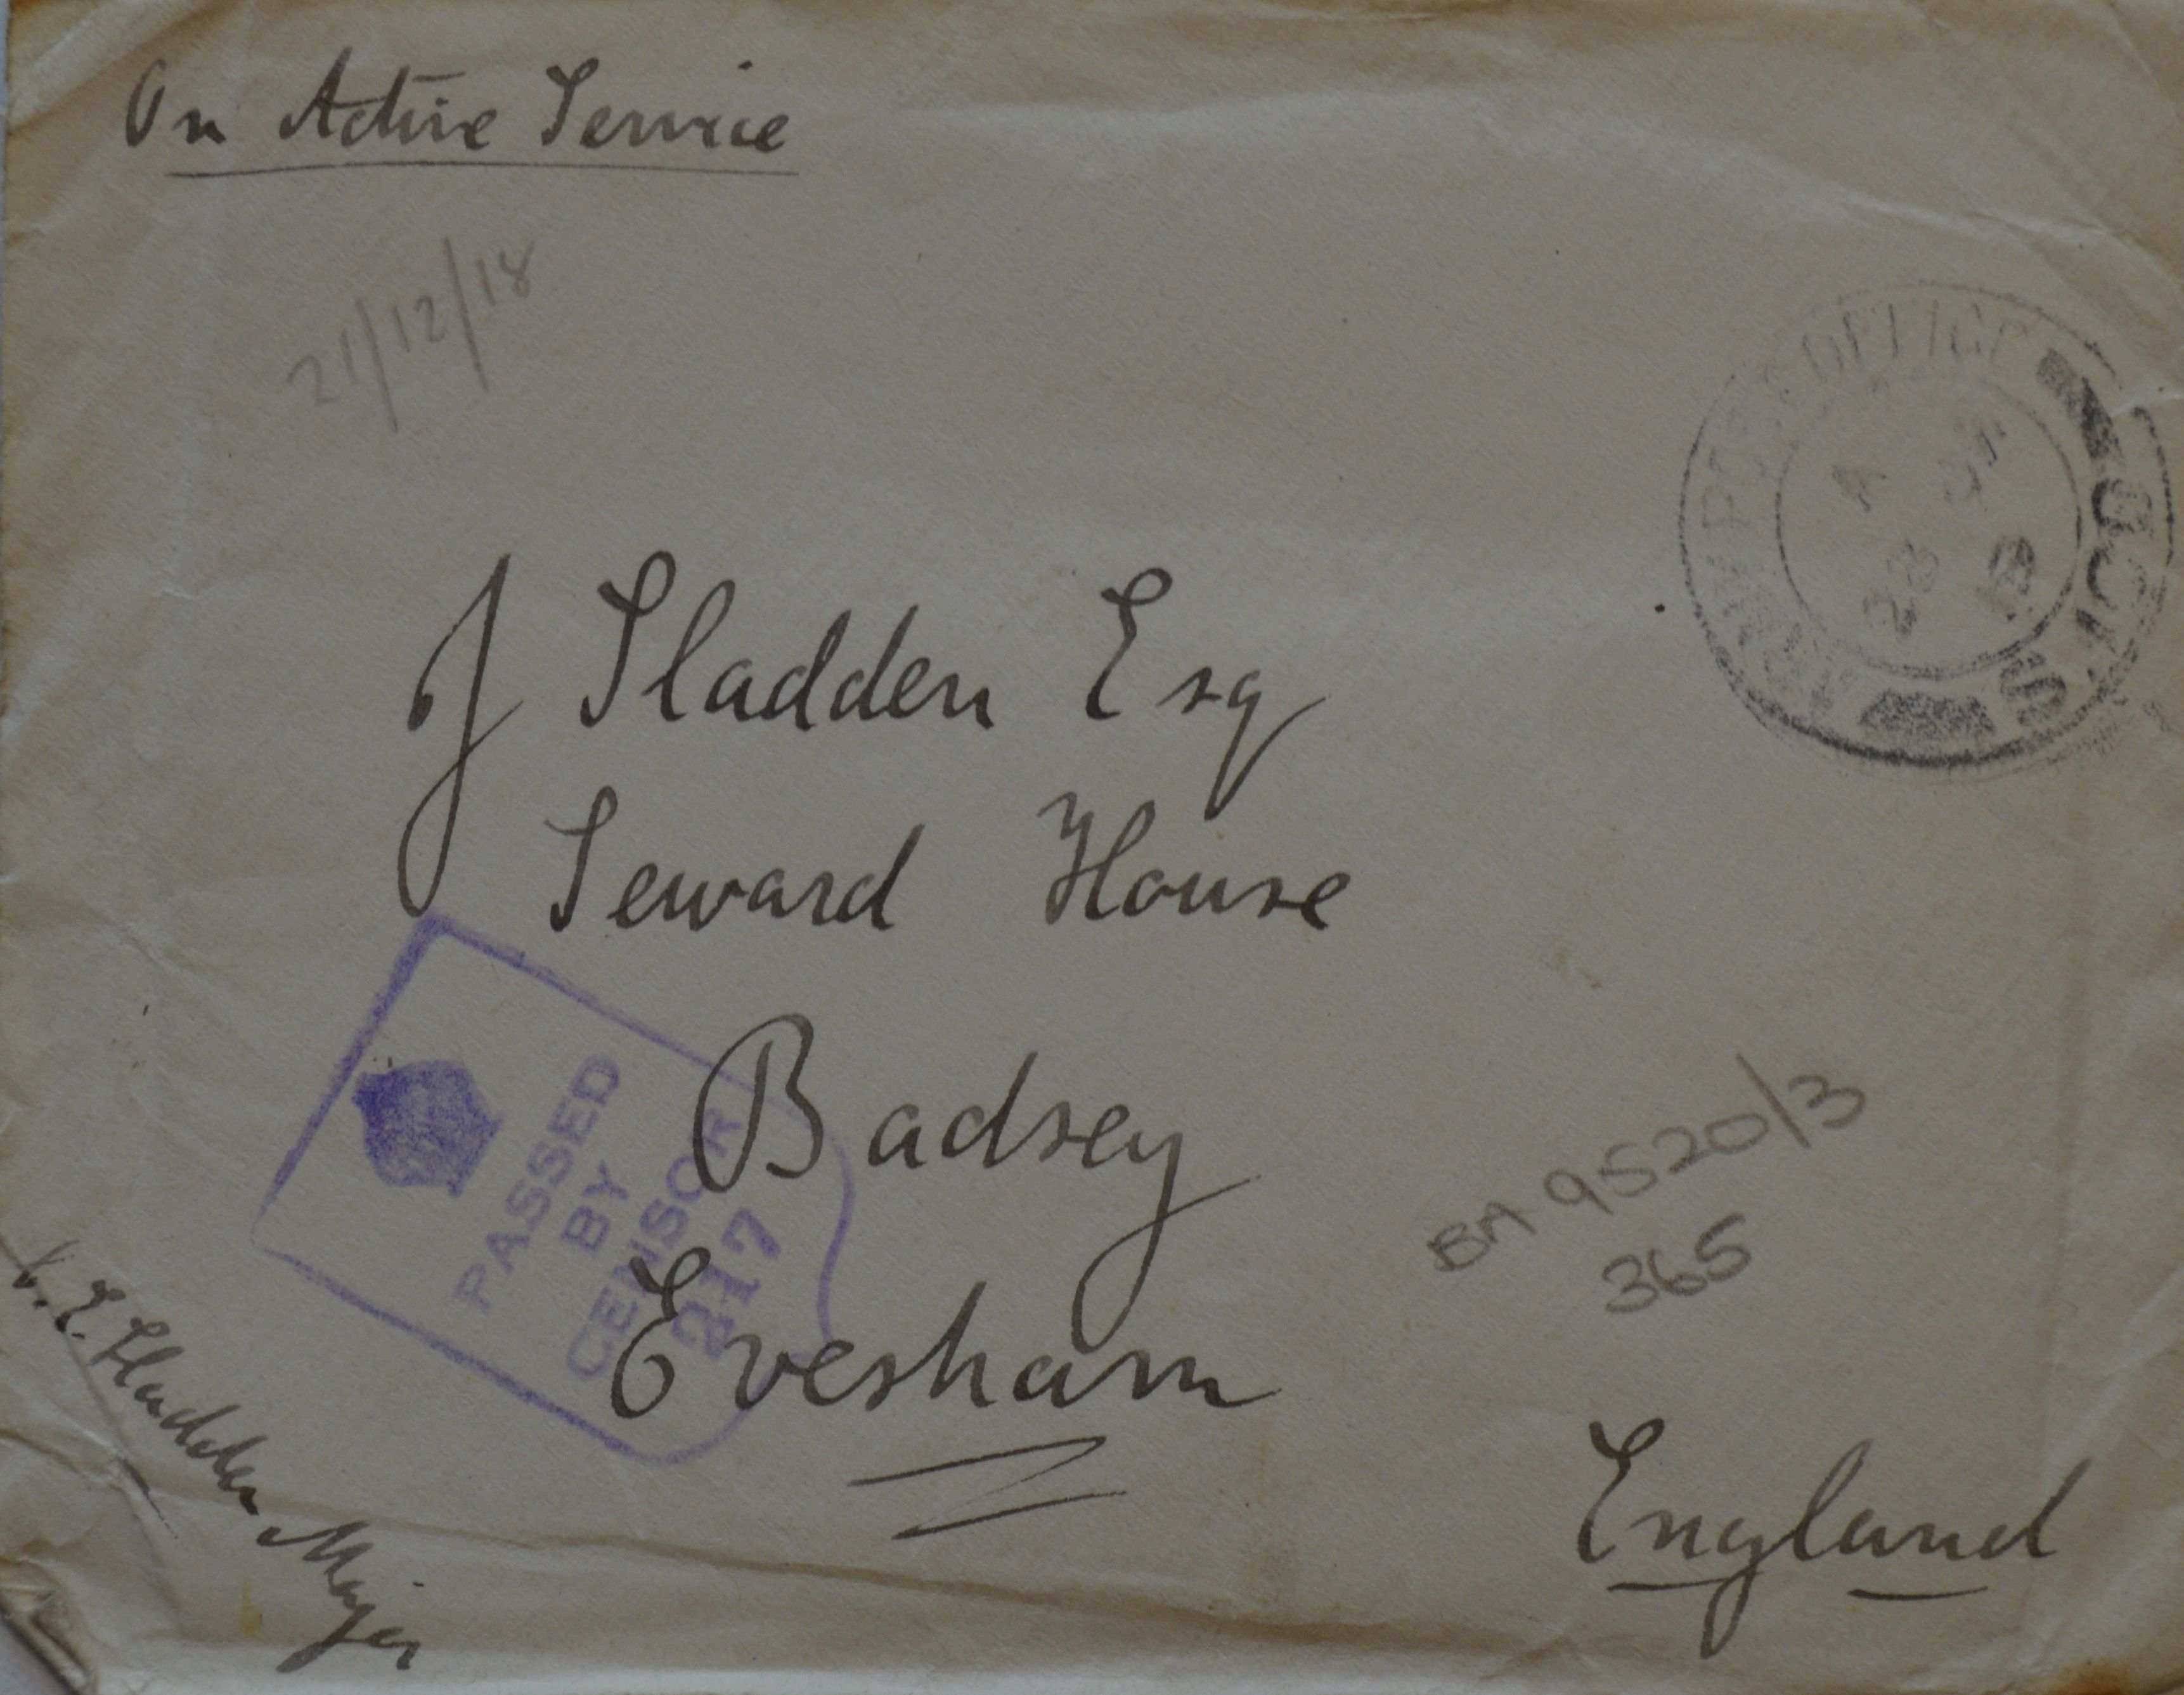 On Active Service
21/12/18
ARMY POST OFFICE
A
28
18
J Sladden Esq
Seward House
Badsey
Evesham
England
PASSED
BY
CENSOR
217
BA 9520/3
365
E. Sladden Major